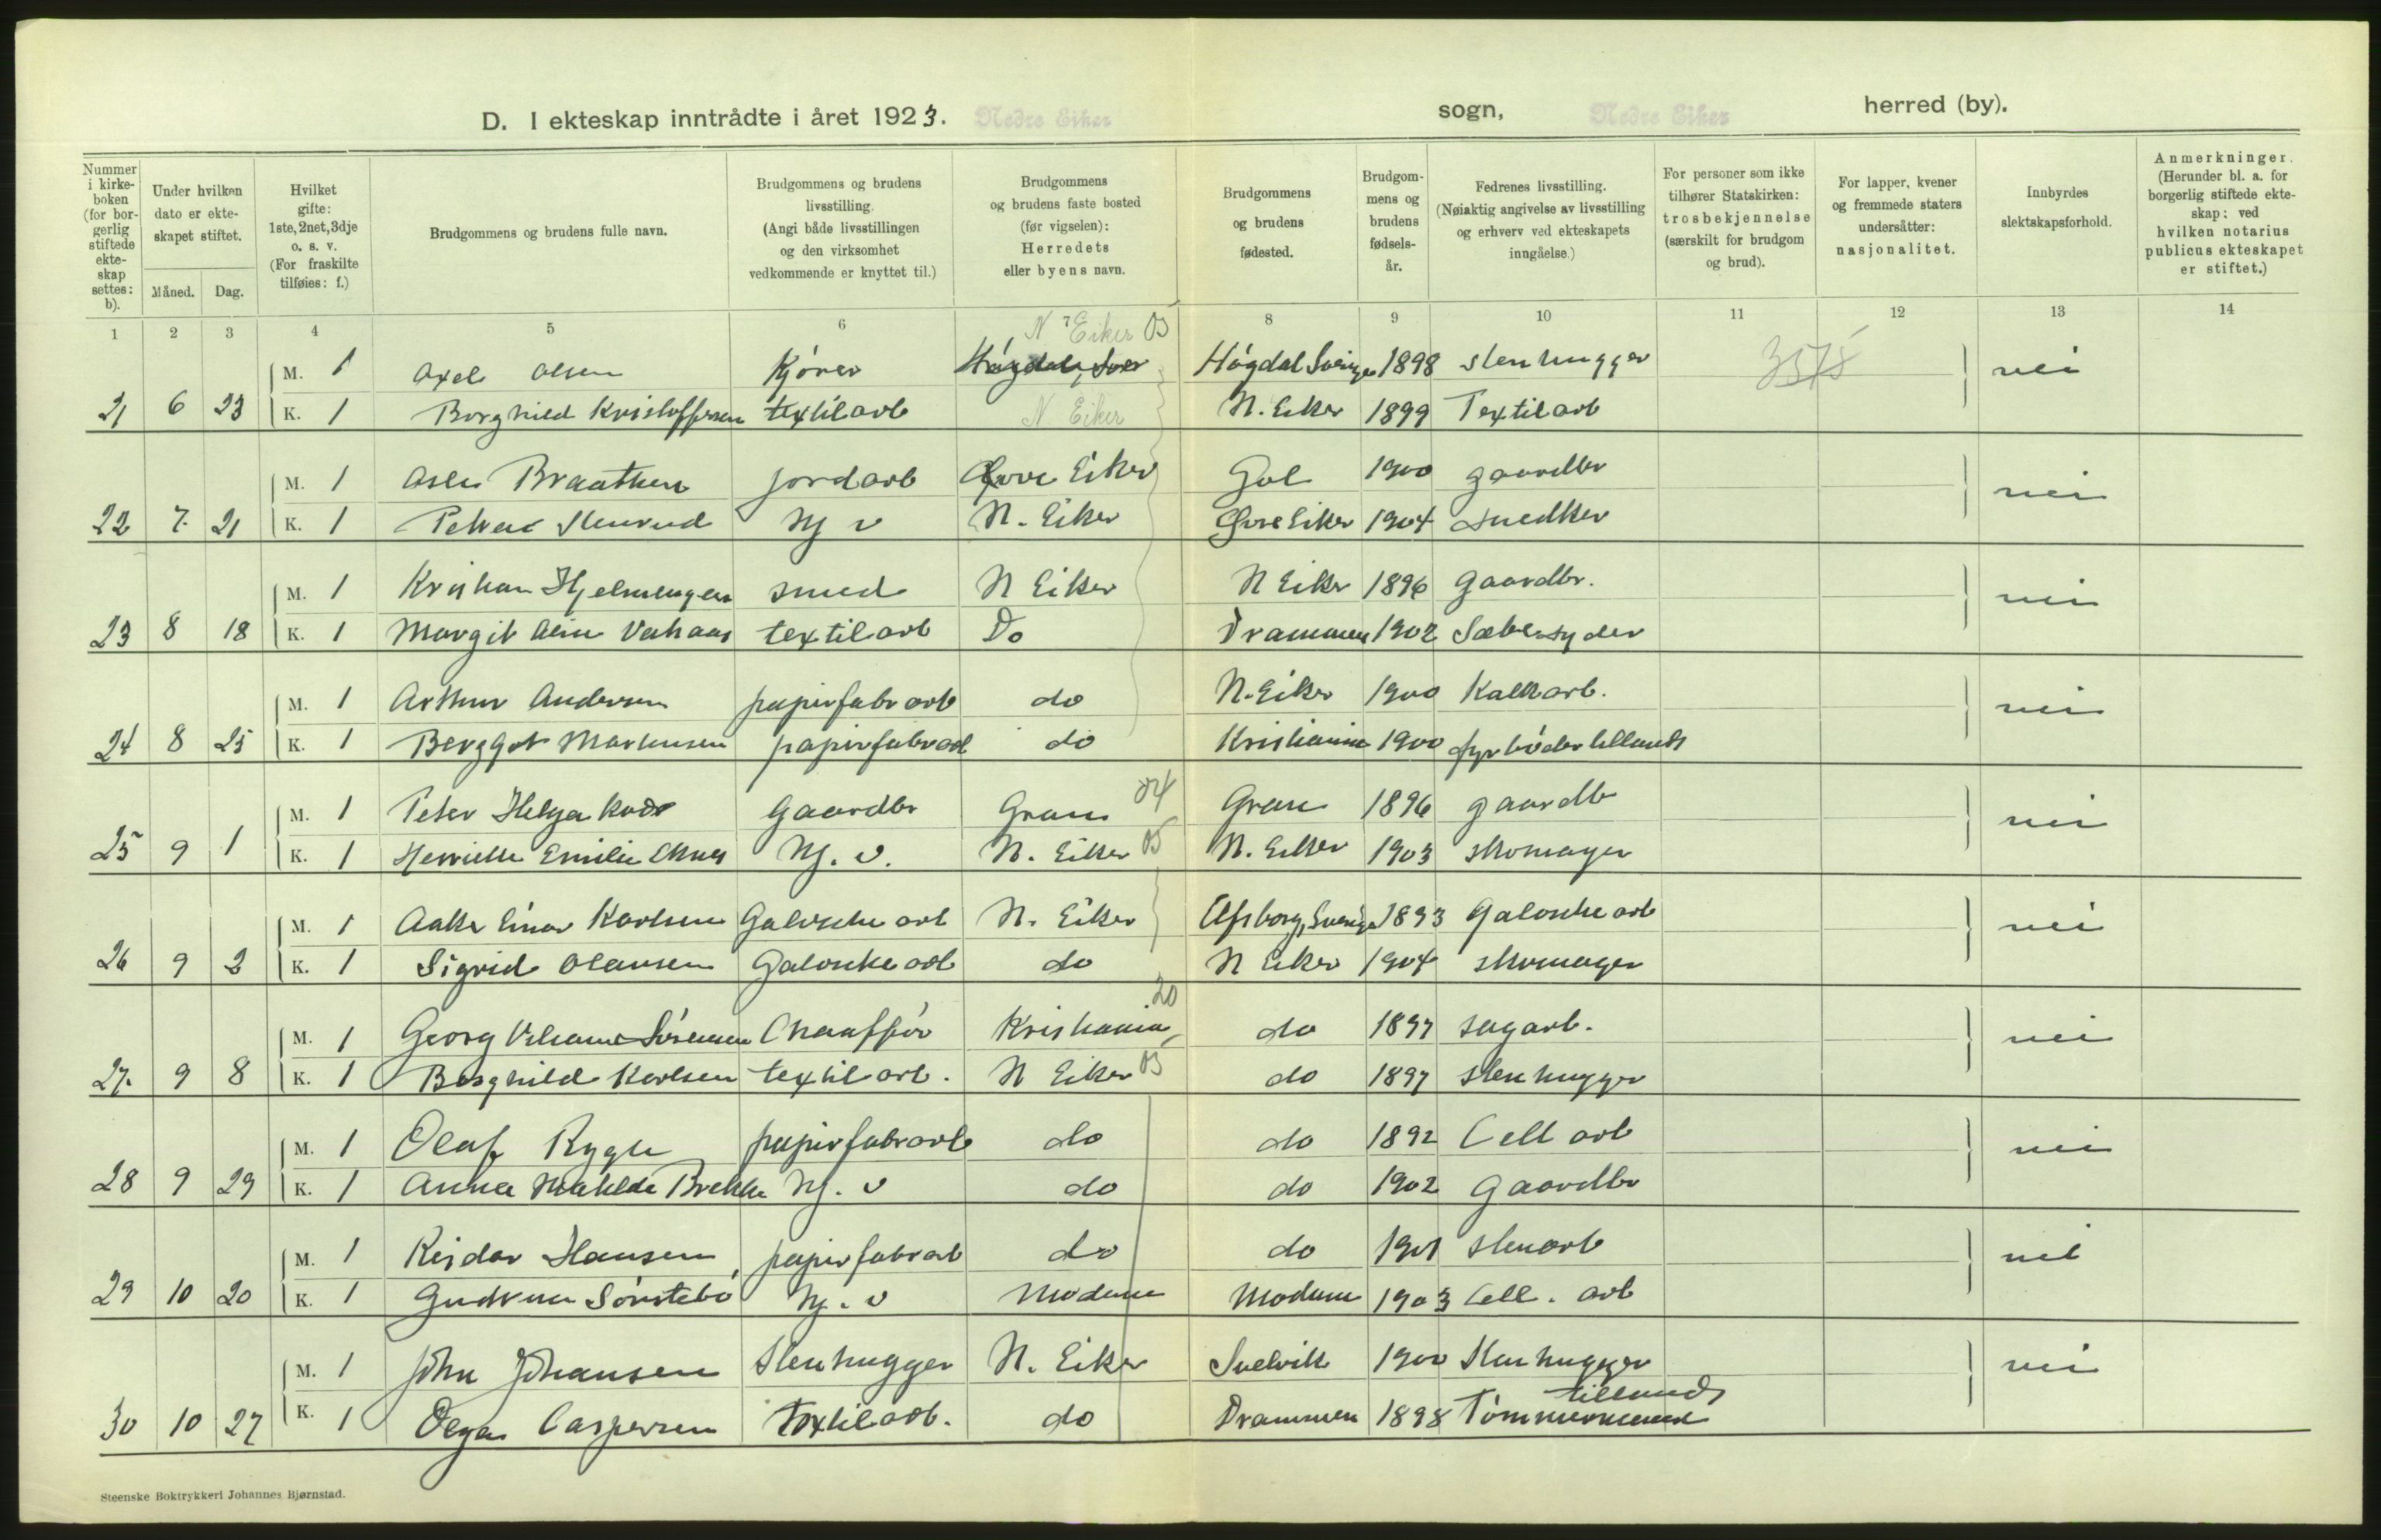 D. I ekteskap inntrådte i året 1923. Nedre Eiker sogn, Nedre Eiker herred (by).
Nummer i kirke-boken (for bor-gerlig stiftede ekte-skap settes: b).
Under hvilken dato er ekte-skapet stiftet.
Måned. Dag.
Hvilket gifte: 1ste, 2net, 3dje o. s. v. (For fraskilte tilføies: f.)
Brudgommens og brudens fulle navn.
Brudgommens og brudens livsstilling. (Angi både livsstillingen og den virksomhet vedkommende er knyttet til.)
Brudgommens og brudens faste bosted (før vigselen): Herredets eller byens navn.
Brudgommens og brudens fødested.
Brudgom-mens og brudens fødsels-år.
Fedrenes livsstilling. (Nøiaktig angivelse av livsstilling og erhverv ved ekteskapets inngåelse.)
For personer som ikke tilhører Statskirken: trosbekjennelse (særskilt for brudgom og brud).
For lapper, kvener og fremmede staters undersåtter: nasjonalitet.
Innbyrdes slektskapsforhold.
Anmerkninger. (Herunder bl. a. for borgerlig stiftede ekte-skap: ved hvilken notarius publicus ekteskapet er stiftet.)
1 2 3 4 5 6 7 8 9 10 11 12 13 14
N Eiker 05
M. 1 Axel Olsen Kjører Högdal, Sver Högdal Sverige 1898 stenhugger 3575 nei
21 6 23 K. 1 Borghild Kristoffersen textilarb N. Eiker N. Eiker 1899 Textilarb
M. 1 Asle Braathen jordarb Øvre Eiker Gol 1900 gaardbr nei
22 7. 21 K. 1 Petra Stenrud Hj v N. Eiker Øvre Eiker 1904 snedker
M. 1 Kristian Hjelmengen smed N Eiker N Eiker 1896 gaardbr. nei
23 8 18 K. 1 Margit Aline textilarb Do Drammen 1902 Sæbesyder
M. 1 Arthur Andersen papirfabrarb do N. Eiker 1900 Kalkarb. nei
24 8 25 K. 1 Bergljot Martinsen papirfabrarb do Kristiania 1900 fyrbøder tillands
M. 1 Peter Helgaker gaardbr Gran 04 Gran 1896 gaardb nei
25 9 1 K. 1 Henriette Emilie Hj. v. N. Eiker 05 N. Eiker 1903 skomager
M. 1 Einar Karlsen Galoschearb N. Eiker Elfsborg, Sverige 1893 Galoschearb nei
26 9 2 K. 1 Sigrid Olausen Galoschearb do N Eiker 1904 skomager
20
M. 1 Georg Sørensen Chauffør Kristiania do 1897 sagarb. nei
27. 9 8 K. 1 Borghild Karlsen textilarb. N Eiker 05 do 1897 stenhugger
M. 1 Olaf Rygh papirfabrarb do do 1892 Cell arb nei
28 9 29 K. 1 Anna Mathilde Brekke Hj. v do do 1902 Gaardbr
M. 1 Reidar Hansen papirfabrarb do do 1901 stenarb nei
29 10 20 K. 1 Gudrun Sørstebø Hj. v Modum Modum 1903 Cell. arb
M. 1 John Johansen Stenhugger N. Eiker Svelvik 1900 Stenhugger nei
tillands
30 10 27 K. 1 Olga Caspersen Textilarb. do Drammen 1898 Tømmermand
Steenske Boktrykkeri Johannes Bjørnstad.